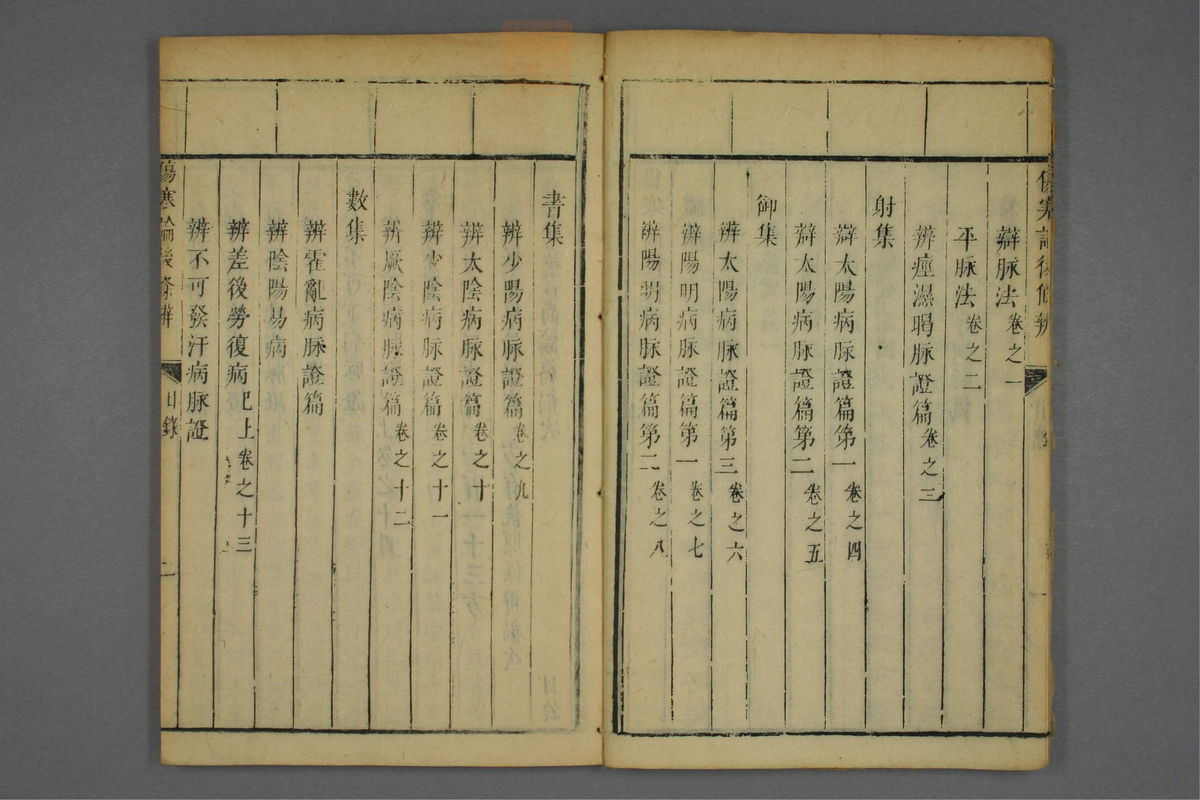 傷寒論後條辨
辯脉法卷之一
平脉法卷之二
辨痙濕暍脉證篇卷之三
射集
辯太陽病脉證篇第一卷之四
辯太陽病脉證篇第二卷之五
御集
辨太陽病脉證篇第三卷之六
辨陽明病脉證篇第一卷之七
辨陽明病脉證篇第二卷之八
書集
辨少陽病脉證篇卷之九
辨太陰病脉證篇卷之十
辨少陰病脉證篇卷之十一
辨厥陰病脉證篇卷之十二
數集
辨霍亂病脉證篇
辨陰陽易病
辨差後勞復病已上卷之十三
辨不可發汗病脉證
傷寒論後條辨 目錄 二